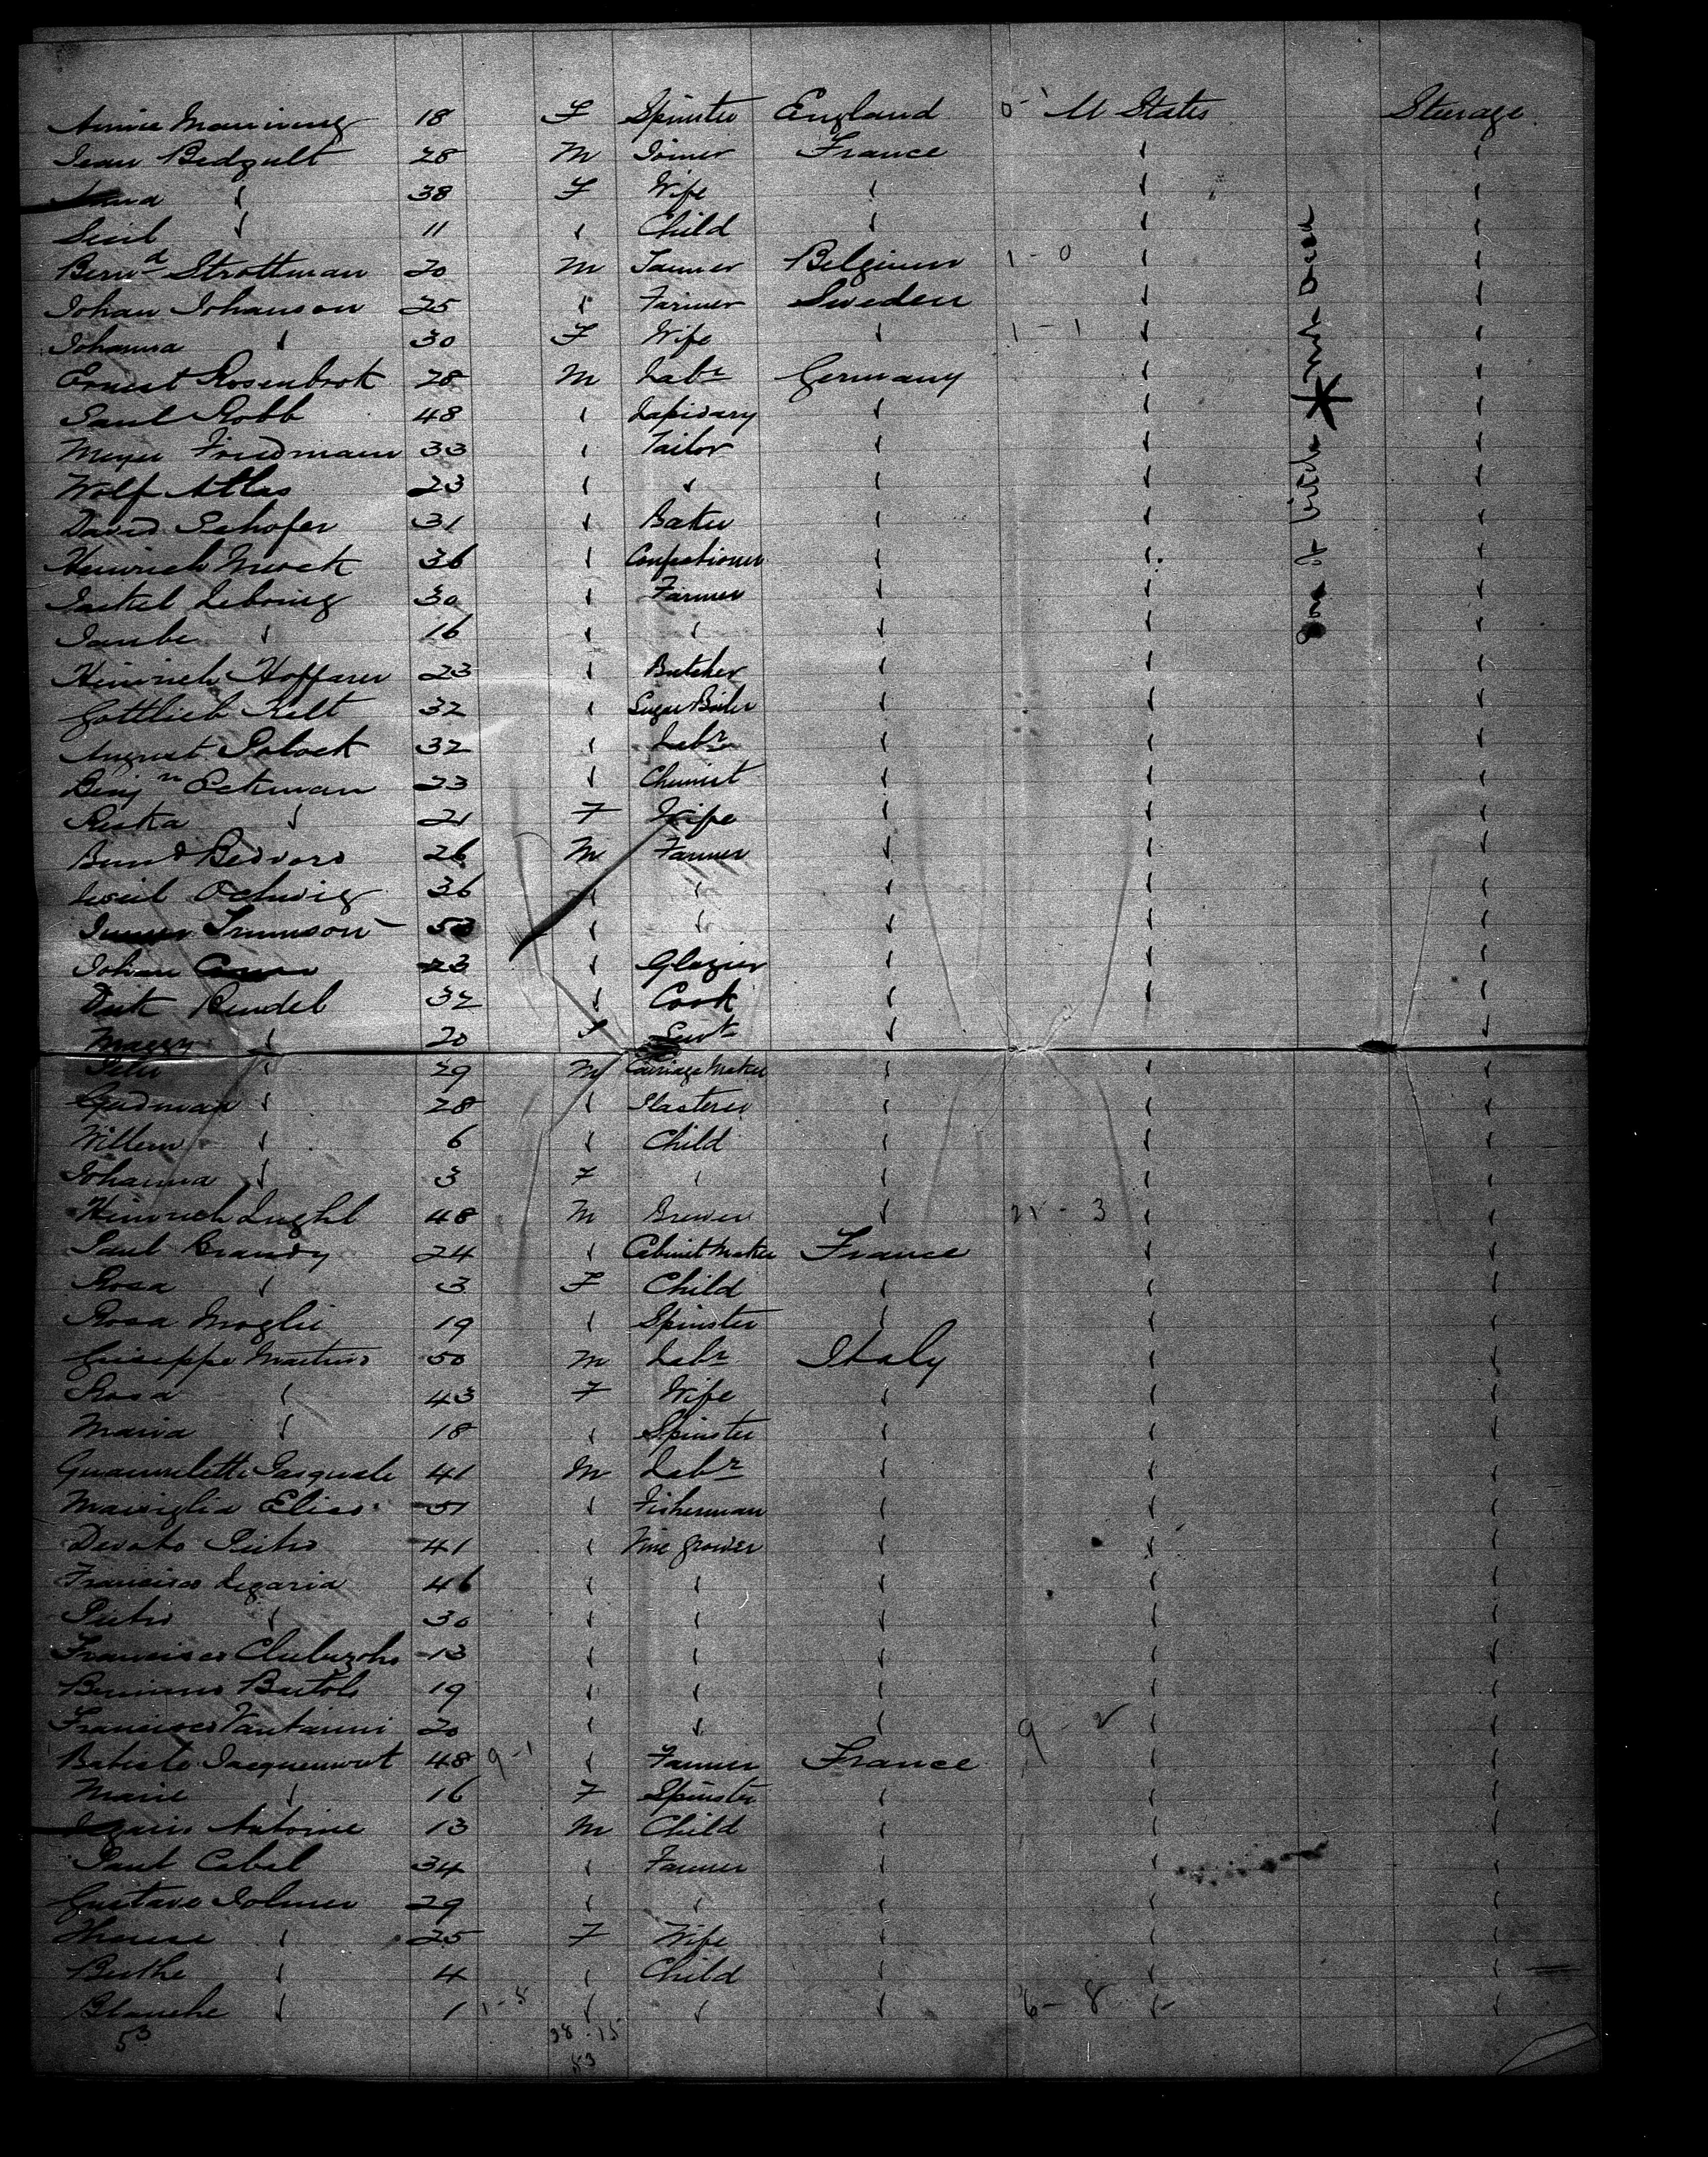 Annie Manning 18 F Spinster England 0-1 U States Steerage
Jean Bedgult 28 M Joiner France
38 F Wife
Secil 11 Child
Bernd Strottman 20 M Tanner Belgium 1-0
Johan Johanson 25 Farmer Sweden
Johanna 30 F Wife 1-1
Ernest Rosenbrok 28 M Labr Germany
Paul Robb 48 Lapidary
Meyer Friedmann 33 Tailor
Wolf Atlas 23
David Schofer 31 Baker
Heinrich Mrock 36 Confectioner
Jackel Leboing 30 Farmer
Taube 16
Heinrich Hoffann 23 Butcher
Gottlieb Kelt 32 Sugar Boiler
August Polock 32 Labr
Benjn Peckman 23 Chemist
Riska 21 F Wife
Bernd Bedvord 26 M Farmer
Ochwig 36
53
Johan 23 Glazier
Dirk Rendel 32 Cook
Maggy 20 F Servt
Peter 29 M Carriage Maker
Gudman 28 Plasterer
Willem 6 Child
Johanna 3 F
Heinrich Lughl 48 M Brewer 21-3
Paul Brandy 24 Cabinet Maker France
Rosa 3 F Child
Rosa Moglie 19 Spinster
Guiseppe Martino 50 M Labr Italy
Rosa 43 F Wife
Maria 18 Spinster
Pasquale 41 M Labr
Elias 51 Fisherman
Devoto Pietro 41 Vine grower
Francisco Legaria 46
Pietro 30
Francisco 13
Bartolo 19
Francisco Vantanini 20 9-2
Batiste Jacquemart 48 9-1 Farmer France
Marie 16 F Spinster
Antoine 13 M Child
Paul Cabel 34 Farmer
Gustave Folmer 29
Therese 25 F Wife
Berthe 4 Child
Blanche 1 1-8 6-8
53 38-15
53